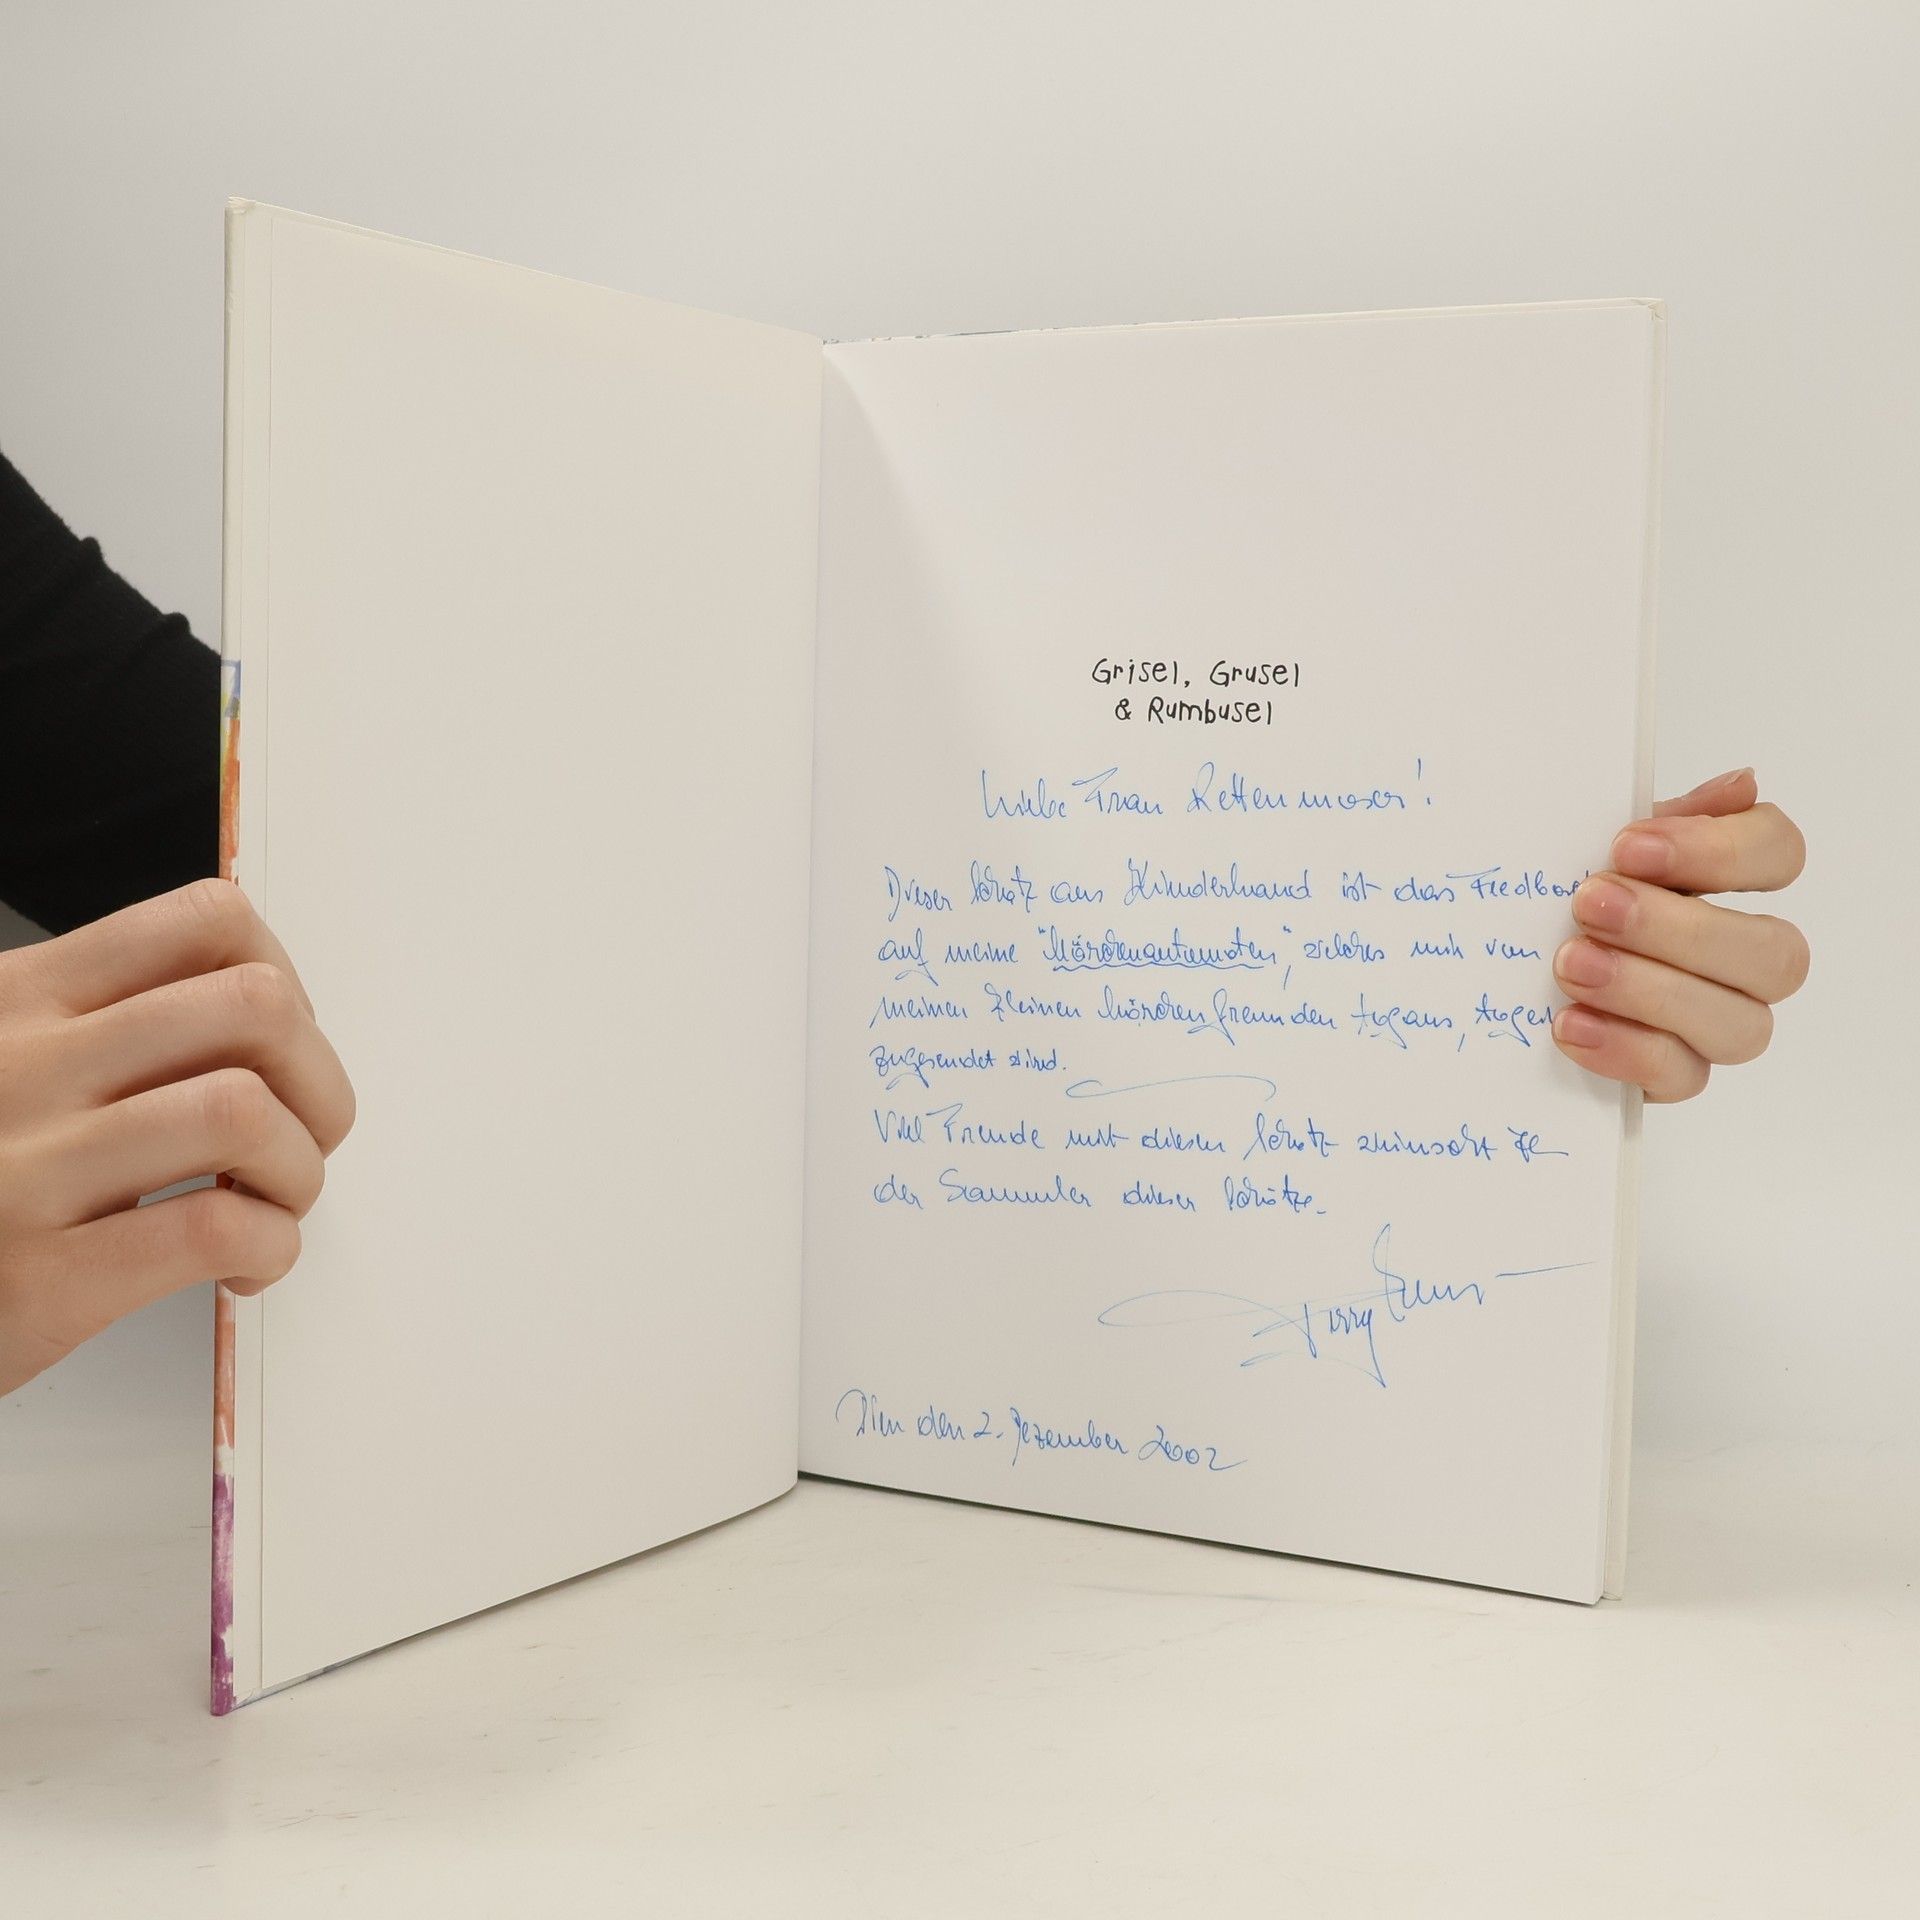 Grisel, Grusel
& Rumbusel
Liebe Frau Rettenmoser!
Dieser Schatz aus Kinderhand ist das Feedbac
auf meine "Märchenautomaten", welches mir von
meinen kleinen Märchenfreunden tagaus, tagein
zugesendet wird.
Viel Freude mit diesem Schatz wünscht
der Sammler dieser Schätze.
Wien den 2. Dezember 2002